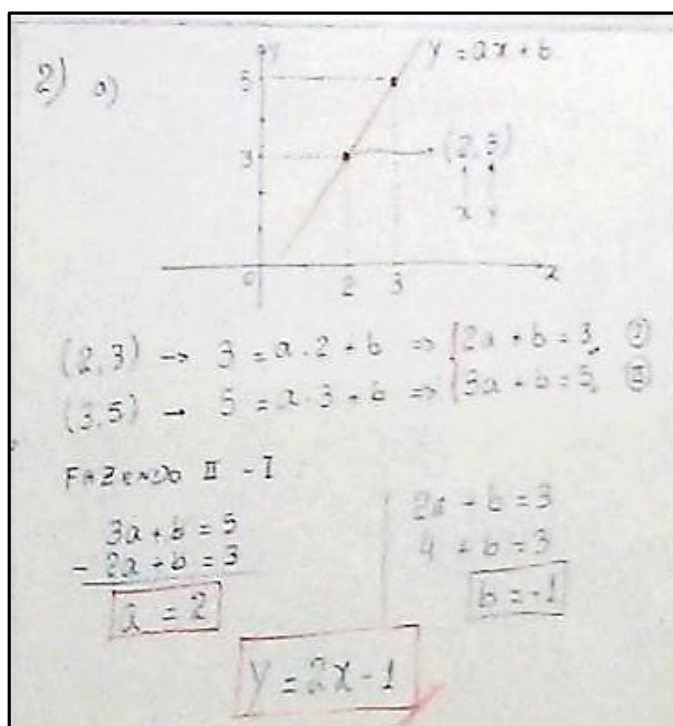 2) a)
y
y = ax + b
5
3
(2,3)
x y
0
2 3
x
(2,3) → 3 = a.2 + b ⇒ { 2a + b = 3, Ⓘ
(3,5) → 5 = a.3 + b ⇒ { 3a + b = 5, Ⓘ Ⓘ
FAZENDO II - I
3a + b = 5
- 2a + b = 3
a = 2
2a + b = 3
4 + b = 3
b = -1
y = 2x - 1